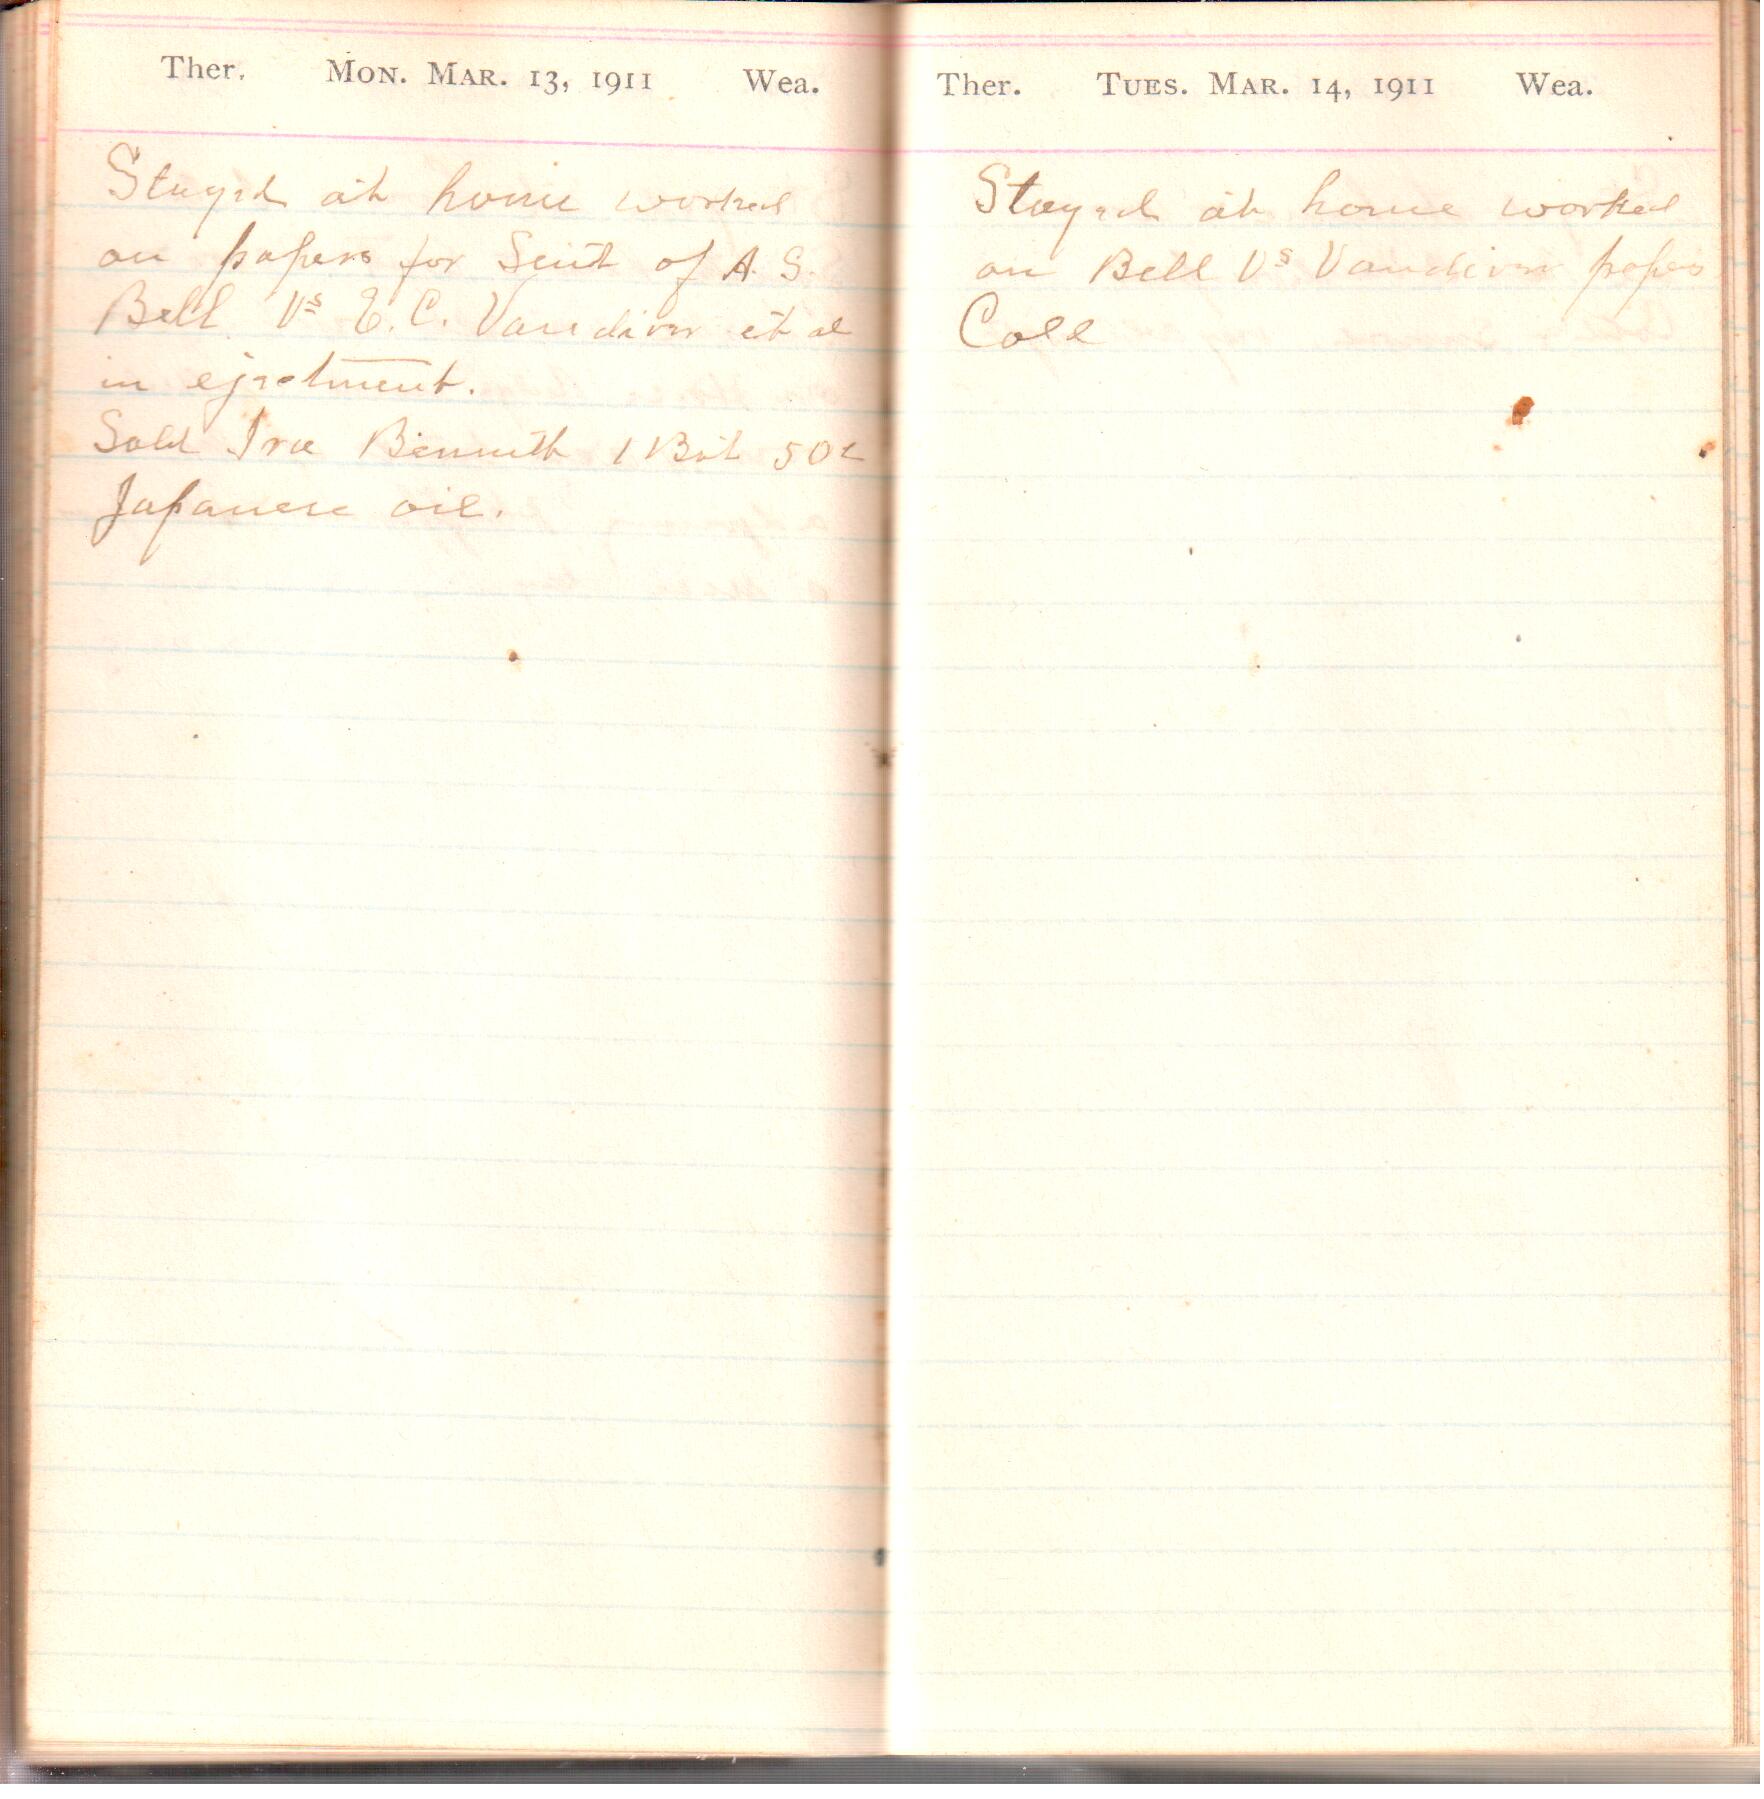 Ther. Mon. Mar. 13, 1911 Wea.
Stayed at home worked
on papers for Suit of A. S.
Bell Vs E. C. Vandiver et al
in ejectment.
Sold Ira Bennett 1 Bot 50c
Japanese oil.
Ther. Tues. Mar. 14, 1911 Wea.
Stayed at home worked
on Bell Vs Vandiver papers
Cold